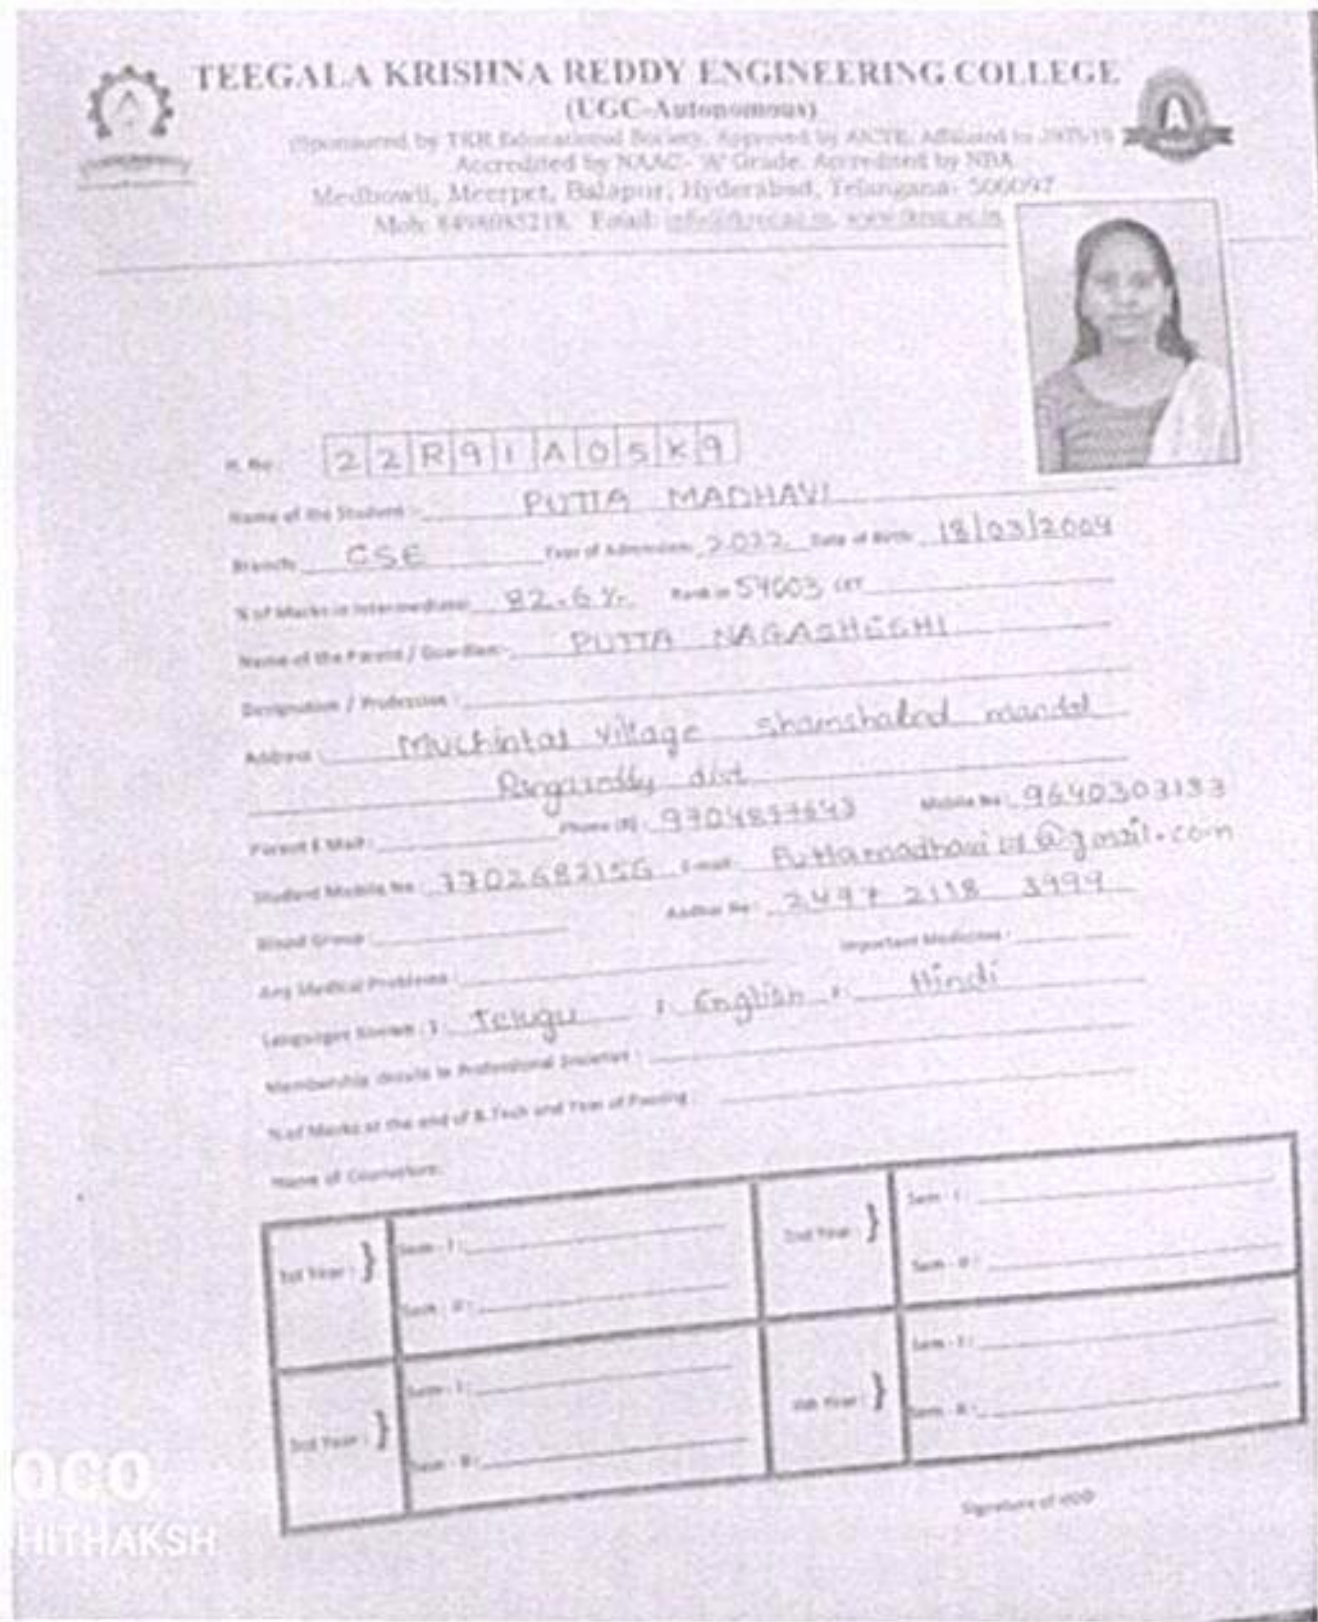 TEEGALA KRISHNA REDDY ENGINEERING COLLEGE
(UGC-Autonomous)
(Sponsored by TKR Educational Society, Approved by AICTE, Affiliated to JNTUH)
Accredited by NAAC- 'A' Grade. Accredited by NBA
Medbowli, Meerpet, Balapur, Hyderabad, Telangana- 500097
Mob: 8498085218. Email:
H. No: 22R91A05K9
Name of the Student :- PUTTA MADHAVI
Branch: CSE Year of Admission: 2022 Date of Birth: 18/03/2004
% of Marks in Intermediate: 82.6 % Rank in 54003 CET
Name of the Parent / Guardian:- PUTTA NAGASHESHI
Designation / Profession :
Address : Muchintal village shamshabad mandal
Rangareddy dist
Parent E Mail: Phone (R) : Mobile No : 9640303183
Student Mobile No : 7702682156 E-mail: @gmail.com
Blood Group : Aadhar No : 2497 2118 3999
Any Medical Problems : Important Medicines :
Languages Known : 1. Telugu 2. English 3. Hindi
Membership details in Professional Societies :
% of Marks at the end of B.Tech and Year of Passing :
Name of Counsellors:
1st Year : } Sem - I : 2nd Year : } Sem - I :
Sem - II : Sem - II :
3rd Year : } Sem - I : IVth Year : } Sem - I :
Sem - II : Sem - II :
Signature of HOD
OCO
HITHAKSH